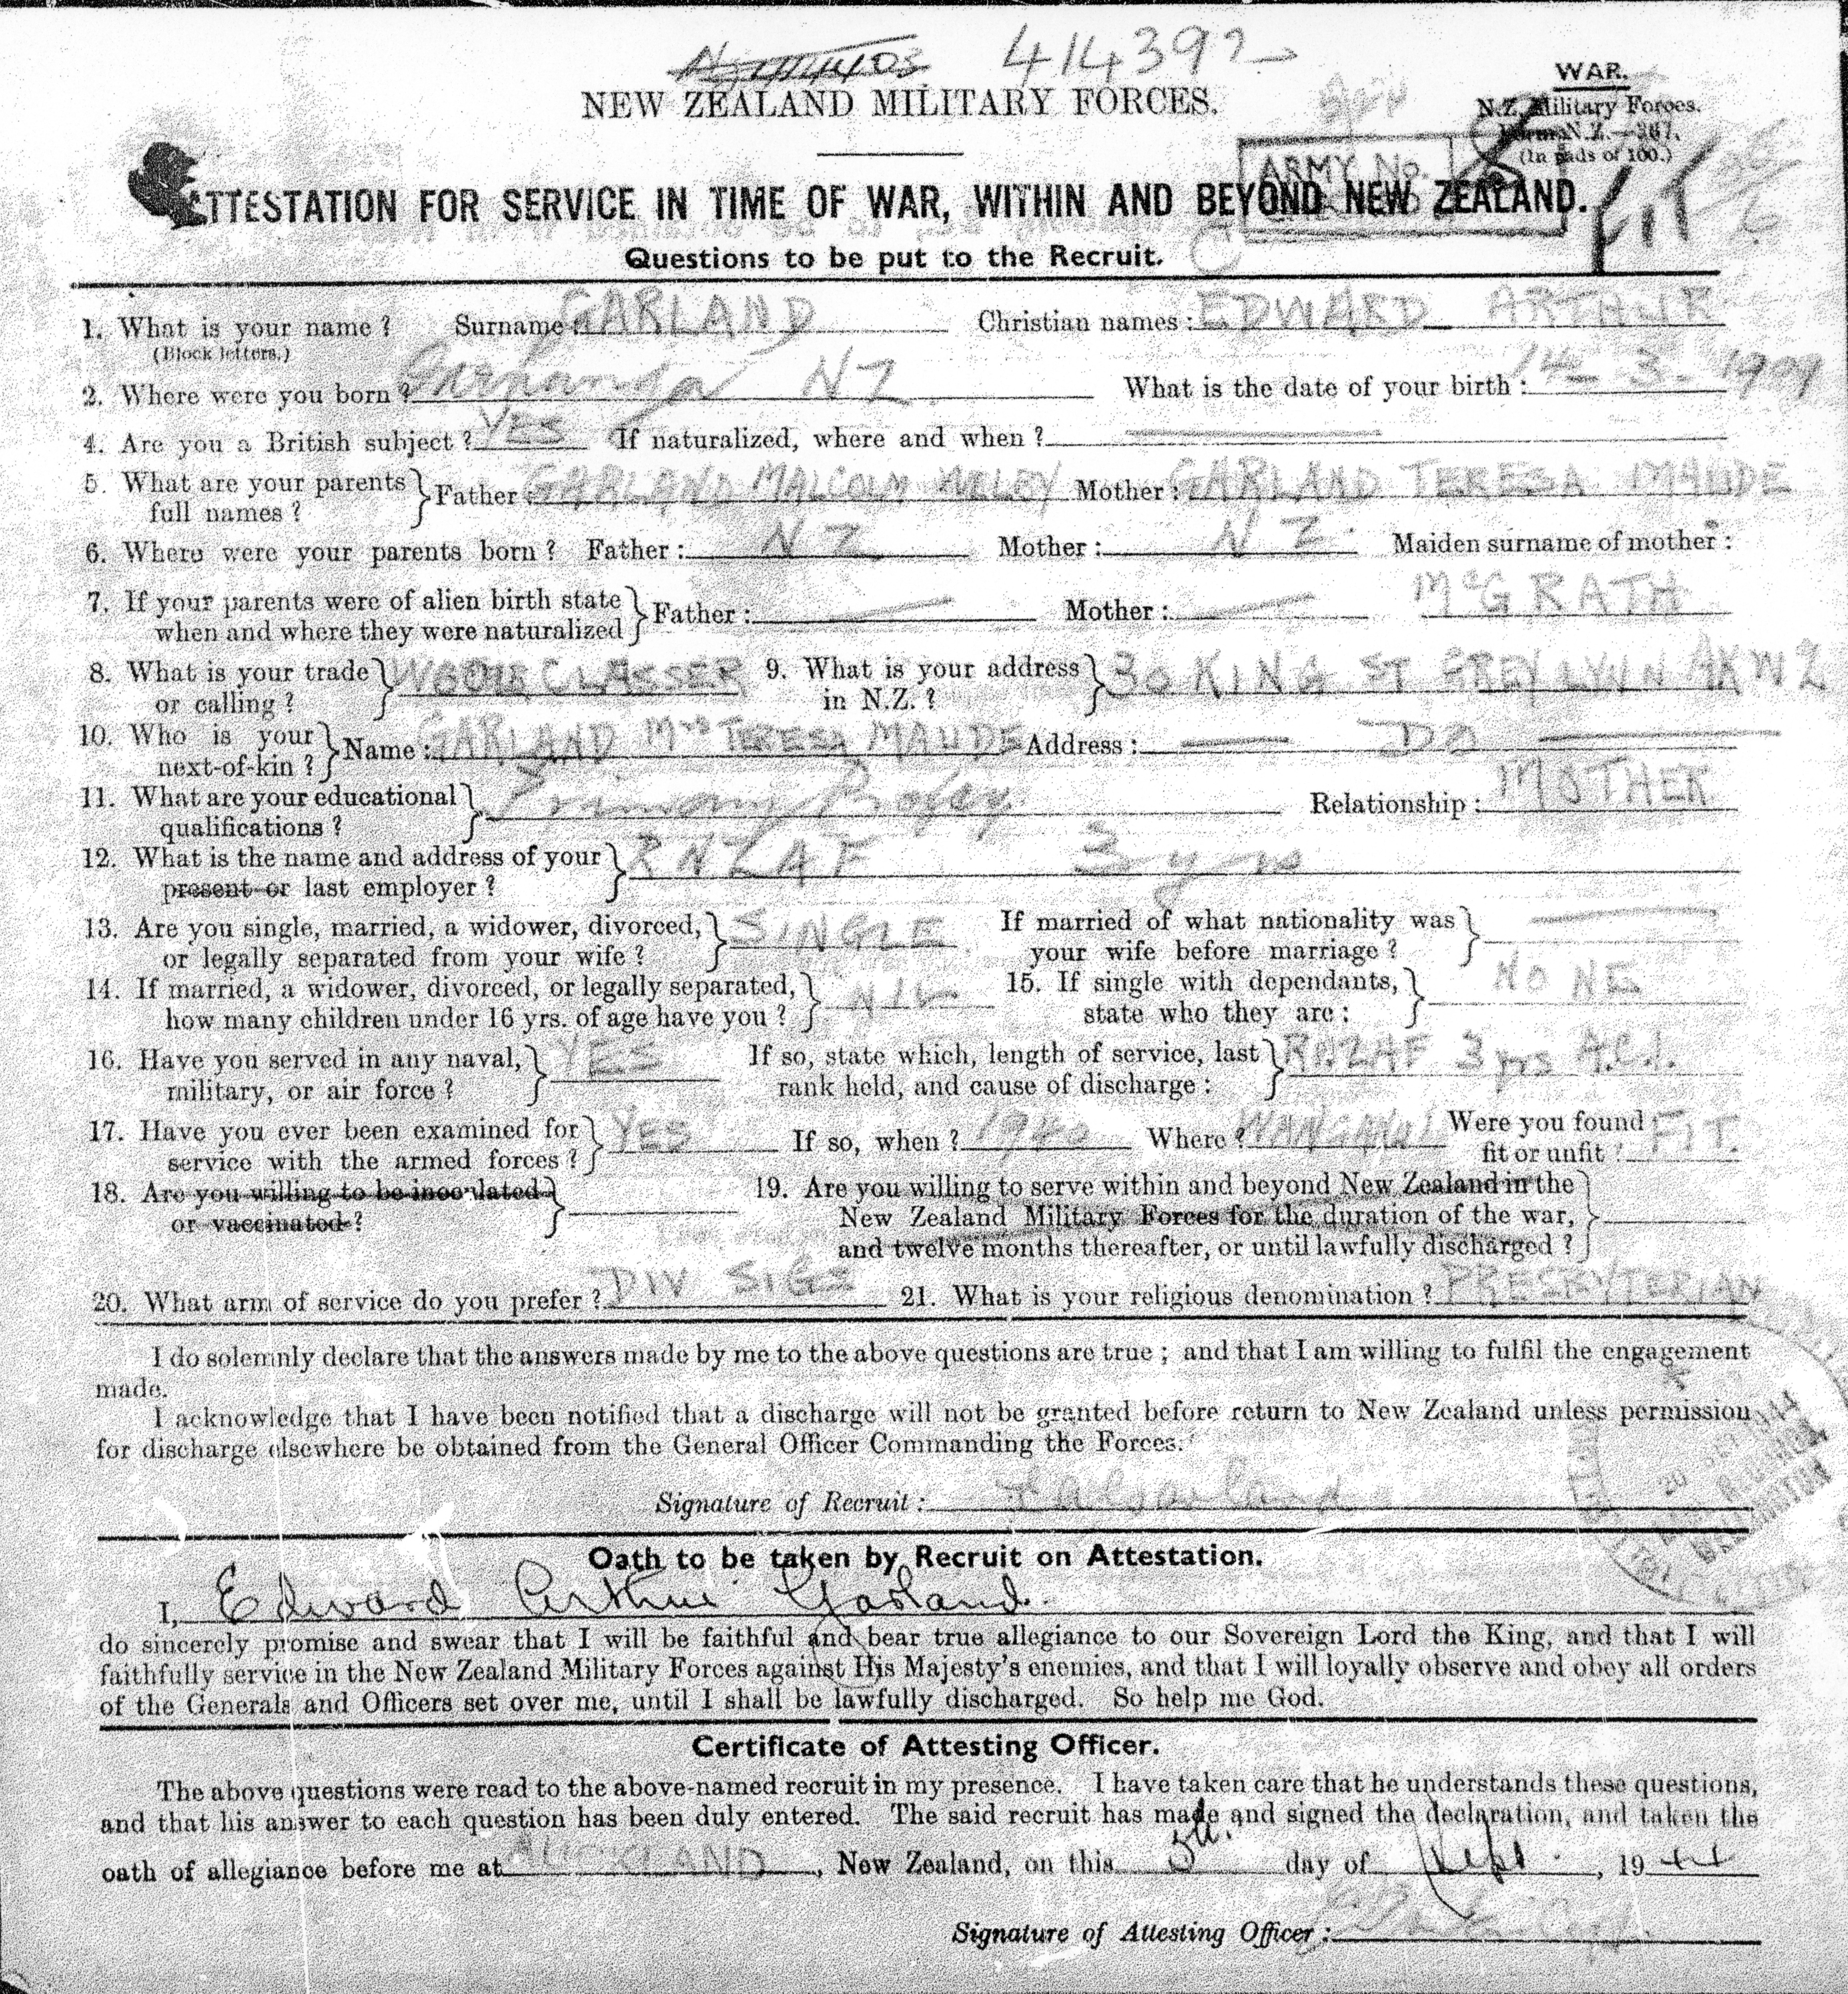 414392
NEW ZEALAND MILITARY FORCES.
WAR.
N.Z. Military Forces.
Form N.Z.—367.
(In pads of 100.)
ARMY No.
FIT
ATTESTATION FOR SERVICE IN TIME OF WAR, WITHIN AND BEYOND NEW ZEALAND.
Questions to be put to the Recruit.
1. What is your name? Surname: GARLAND Christian names: EDWARD ARTHUR
(Block letters.)
2. Where were you born? NZ What is the date of your birth: 14-3-1909
4. Are you a British subject? YES If naturalized, where and when?
5. What are your parents Father: GARLAND MALCOLM Mother: GARLAND TERESA MAUDE
full names?
6. Where were your parents born? Father: NZ Mother: NZ. Maiden surname of mother:
McGRATH
7. If your parents were of alien birth state Father: Mother:
when and where they were naturalized
8. What is your trade CLASSER 9. What is your address 30 KING ST GREY LYNN AK W2
or calling? in N.Z.?
10. Who is your Name: GARLAND Mrs TERESA MAUDE Address: DO
next-of-kin?
11. What are your educational Primary Relationship: MOTHER
qualifications?
12. What is the name and address of your RNZAF 3 yrs
present or last employer?
13. Are you single, married, a widower, divorced, SINGLE If married of what nationality was
or legally separated from your wife? your wife before marriage?
14. If married, a widower, divorced, or legally separated, NIL 15. If single with dependants, NONE
how many children under 16 yrs. of age have you? state who they are:
16. Have you served in any naval, YES If so, state which, length of service, last RNZAF 3 yrs A.C.1.
military, or air force? rank held, and cause of discharge:
17. Have you ever been examined for YES If so, when? 1940 Where? WANGANUI Were you found FIT.
service with the armed forces? fit or unfit?
18. Are you willing to be inoculated 19. Are you willing to serve within and beyond New Zealand in the
or vaccinated? New Zealand Military Forces for the duration of the war,
and twelve months thereafter, or until lawfully discharged?
20. What arm of service do you prefer? DIV SIGS 21. What is your religious denomination? PRESBYTERIAN
I do solemnly declare that the answers made by me to the above questions are true; and that I am willing to fulfil the engagement
made.
I acknowledge that I have been notified that a discharge will not be granted before return to New Zealand unless permission
for discharge elsewhere be obtained from the General Officer Commanding the Forces.
Signature of Recruit: EAGarland
Oath to be taken by Recruit on Attestation.
I, Edward Arthur Garland.
do sincerely promise and swear that I will be faithful and bear true allegiance to our Sovereign Lord the King, and that I will
faithfully service in the New Zealand Military Forces against His Majesty's enemies, and that I will loyally observe and obey all orders
of the Generals and Officers set over me, until I shall be lawfully discharged. So help me God.
Certificate of Attesting Officer.
The above questions were read to the above-named recruit in my presence. I have taken care that he understands these questions,
and that his answer to each question has been duly entered. The said recruit has made and signed the declaration, and taken the
oath of allegiance before me at AUCKLAND, New Zealand, on this 5th. day of Sept., 1944
Signature of Attesting Officer: